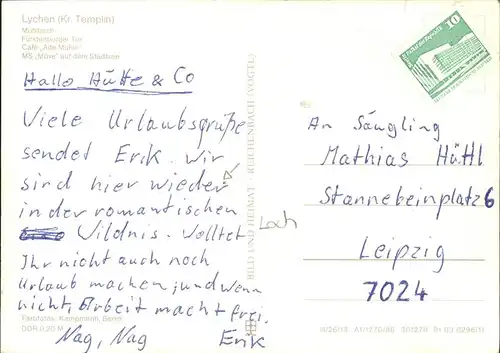 Lychen (Kr. Templin)
Mühlteich
Fürstenberger Tor
Café „Alte Mühle“
MS „Möwe“ auf dem Stadtsee
Hallo Hütte & Co
Viele Urlaubsgrüße
sendet Erik. Wir
sind hier wieder
in der romantischen
Wildnis. Wolltet
Ihr nicht auch noch
Urlaub machen, und wenn
nicht, Arbeit macht frei.
Nag, Nag Erik
Loch
Farbfotos: Kampmann, Berlin
DDR 0,20 M
BILD UND HEIMAT · REICHENBACH (VOGTL)
10
An Säugling
Mathias Hüttl
Stannebeinplatz 6
Leipzig
7024